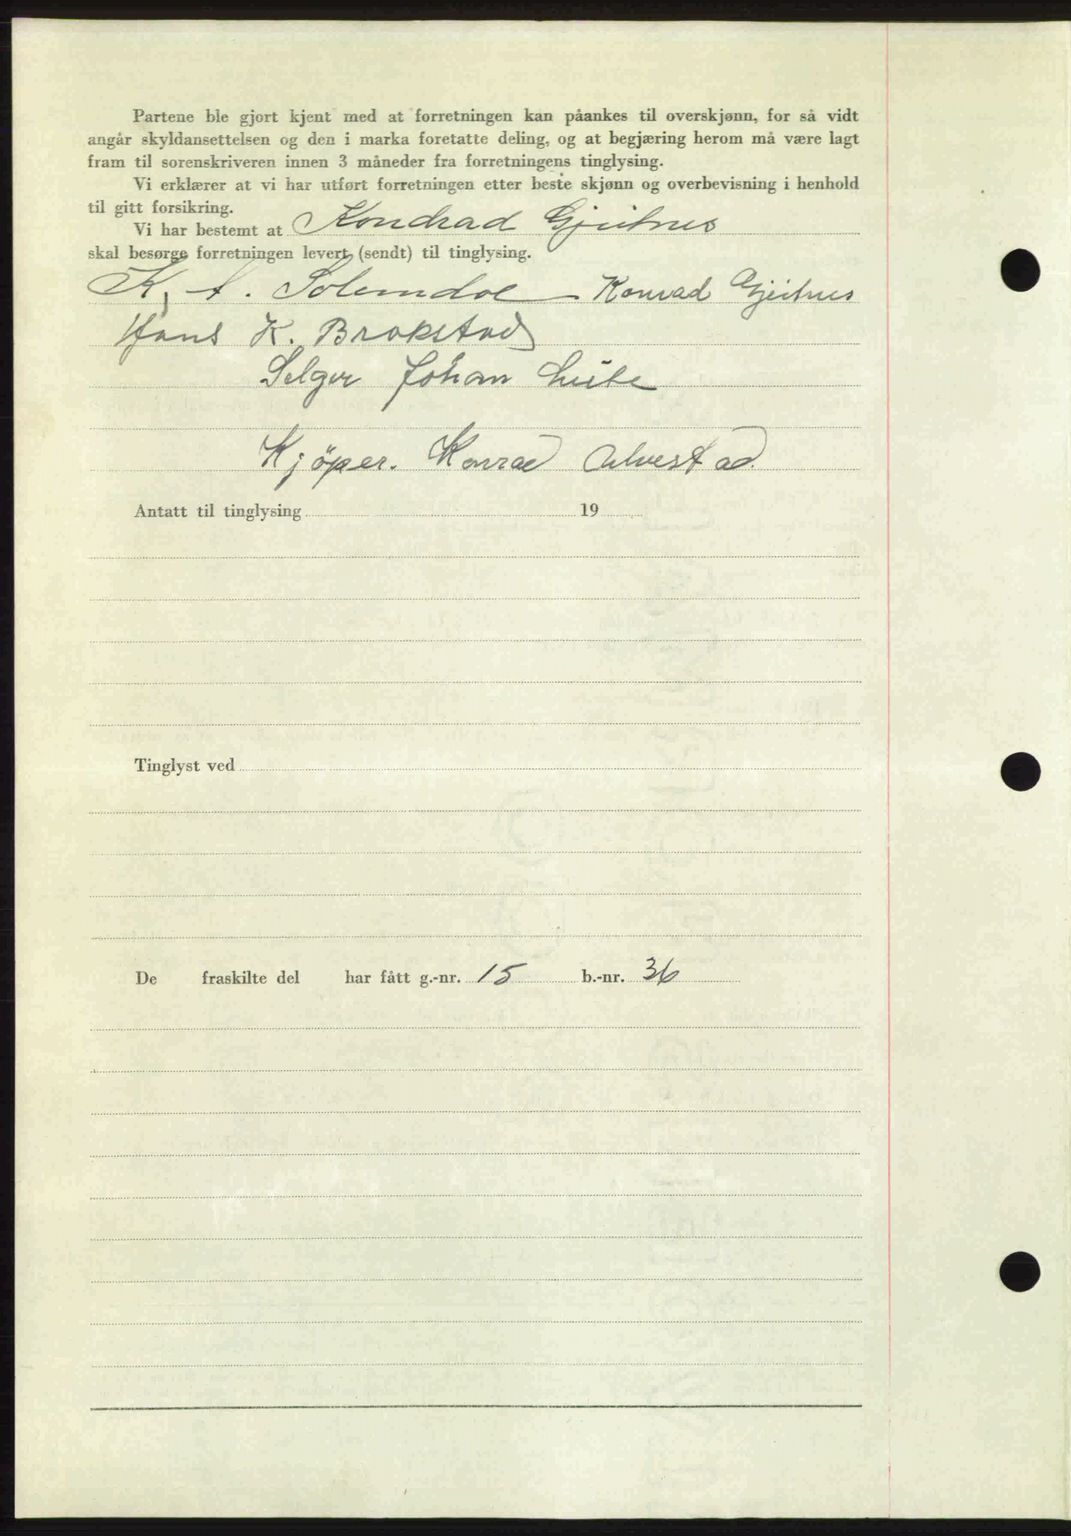 Partene ble gjort kjent med at forretningen kan påankes til overskjønn, for så vidt
angår skyldansettelsen og den i marka foretatte deling, og at begjæring herom må være lagt
fram til sorenskriveren innen 3 måneder fra forretningens tinglysing.
Vi erklærer at vi har utført forretningen etter beste skjønn og overbevisning i henhold
til gitt forsikring.
Vi har bestemt at Kondrad Gjeitnes
skal besørge forretningen levert (sendt) til tinglysing.
K. A. Solemdal Konrad Gjeitnes
Hans K. Brokstad
Selger Johan
Kjöper. Konrad Alvestad.
Antatt til tinglysing 19
Tinglyst ved
De fraskilte del har fått g.-nr. 15 b.-nr. 36